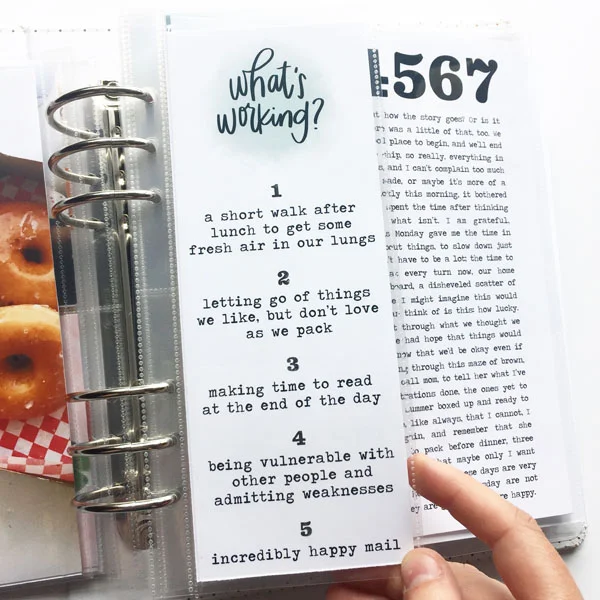 what's
working?
1
a short walk after
lunch to get some
fresh air in our lungs
2
letting go of things
we like, but don't love
as we pack
3
making time to read
at the end of the day
4
being vulnerable with
other people and
admitting weaknesses
5
incredibly happy mail
:567
how the story goes? Or is it
was a little of that, too. We
place to begin, and we'll end
so really, everything in
and I can't complain too much
or maybe it's more of a
this morning, it bothered
spent the time after thinking
what isn't. I am grateful,
Monday gave me the time in
things, to slow down just
have to be a lot; the time to
every turn now, our home
a disheveled scatter of
I might imagine this would
think of is this: how lucky.
through what we thought we
had hope that things would
that we'd be okay even if
through this maze of brown,
call mom, to tell her what I've
done, the ones yet to
boxed up and ready to
like always, that I cannot, I
and remember that she
pack before dinner, three
that maybe only I want
days are very
day are not
are happy.